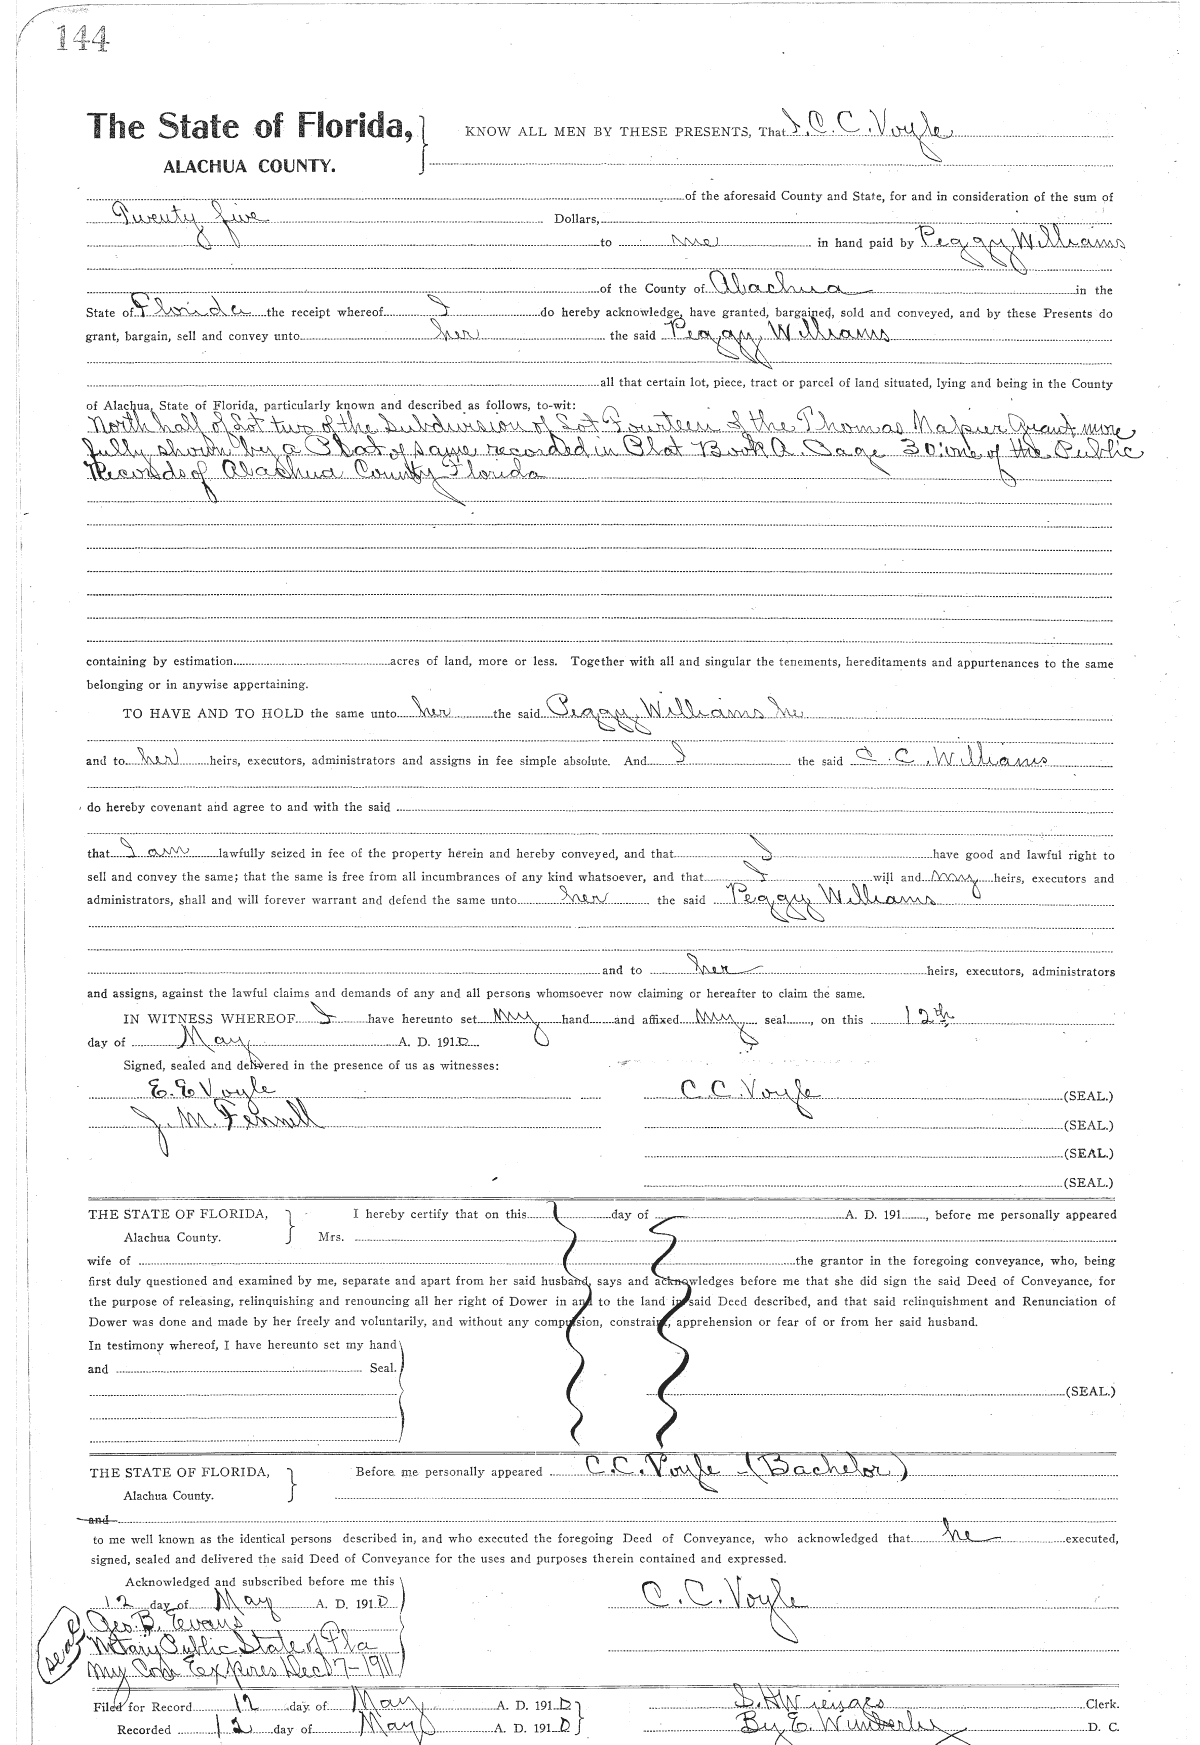 144
The State of Florida, KNOW ALL MEN BY THESE PRESENTS, That I, C. C. Voyle
ALACHUA COUNTY.
of the aforesaid County and State, for and in consideration of the sum of
Twenty five Dollars,
to me in hand paid by Peggy Williams
of the County of Alachua in the
State of Florida the receipt whereof I do hereby acknowledge, have granted, bargained, sold and conveyed, and by these Presents do
grant, bargain, sell and convey unto her the said Peggy Williams
all that certain lot, piece, tract or parcel of land situated, lying and being in the County
of Alachua, State of Florida, particularly known and described as follows, to-wit:
North half of Lot two of the Subdivision of Lot Fourteen of the Thomas Napier Grant more
fully shown by a Plat of same recorded in Plat Book A. Page 30: one of the Public
Records of Alachua County Florida
containing by estimation acres of land, more or less. Together with all and singular the tenements, hereditaments and appurtenances to the same
belonging or in anywise appertaining.
TO HAVE AND TO HOLD the same unto her the said Peggy Williams he
and to her heirs, executors, administrators and assigns in fee simple absolute. And I the said C. C. Williams
do hereby covenant and agree to and with the said
that I am lawfully seized in fee of the property herein and hereby conveyed, and that I have good and lawful right to
sell and convey the same; that the same is free from all incumbrances of any kind whatsoever, and that I will and my heirs, executors and
administrators, shall and will forever warrant and defend the same unto her the said Peggy Williams
and to her heirs, executors, administrators
and assigns, against the lawful claims and demands of any and all persons whomsoever now claiming or hereafter to claim the same.
IN WITNESS WHEREOF I have hereunto set my hand and affixed my seal, on this 12th
day of May A. D. 1910
Signed, sealed and delivered in the presence of us as witnesses:
E. E Voyle C. C. Voyle (SEAL.)
J. M. Fennell (SEAL.)
(SEAL.)
(SEAL.)
THE STATE OF FLORIDA, I hereby certify that on this day of A. D. 191, before me personally appeared
Alachua County. Mrs.
wife of the grantor in the foregoing conveyance, who, being
first duly questioned and examined by me, separate and apart from her said husband, says and acknowledges before me that she did sign the said Deed of Conveyance, for
the purpose of releasing, relinquishing and renouncing all her right of Dower in and to the land in said Deed described, and that said relinquishment and Renunciation of
Dower was done and made by her freely and voluntarily, and without any compulsion, constraint, apprehension or fear of or from her said husband.
In testimony whereof, I have hereunto set my hand
and Seal.
(SEAL.)
THE STATE OF FLORIDA, Before me personally appeared C. C. Voyle - (Bachelor)
Alachua County.
and
to me well known as the identical persons described in, and who executed the foregoing Deed of Conveyance, who acknowledged that he executed,
signed, sealed and delivered the said Deed of Conveyance for the uses and purposes therein contained and expressed.
Acknowledged and subscribed before me this
12 day of May A. D. 1910 C. C. Voyle
seal Geo. B. Evans
Notary Public State of Fla
My Com Expires Dec 17-1911
Filed for Record 12 day of May A. D. 1910 S. H. Wienges Clerk.
Recorded 12 day of May A. D. 1910 By E. Wimberly D. C.